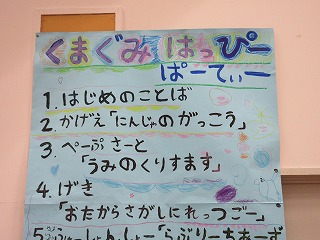 くまぐみ はっぴー
ぱーてぃー
1. はじめのことば
2. かげえ「にんじゃのがっこう」
3. ぺーぷさーと
「うみのくりすます」
4. げき
「おたからさがしにれっつごー」
5. ふぁっしょんしょー「らぶりーちあーず